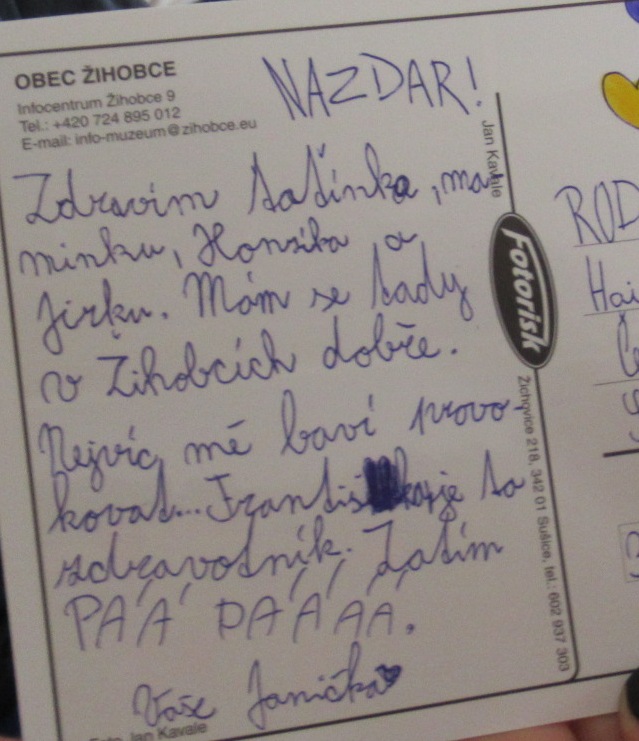 OBEC ŽIHOBCE
Infocentrum Žihobce 9
Tel.: +420 724 895 012
E-mail: info-muzeum@zihobce.eu
NAZDAR!
Zdravím taťínka, ma
minku, Honzíka a
Jirku. Mám se tady
v Žihobcích dobře.
Nejvíc mě baví provo-
kovat... Františka je to
zdravotník. Zatím
PÁÁ PÁÁÁÁ.
Vaše Janička
Foto Jan Kavale
Jan Kavale
Fotorisk
Žichovice 218, 342 01 Sušice, tel.: 602 937 303
ROD
Haj